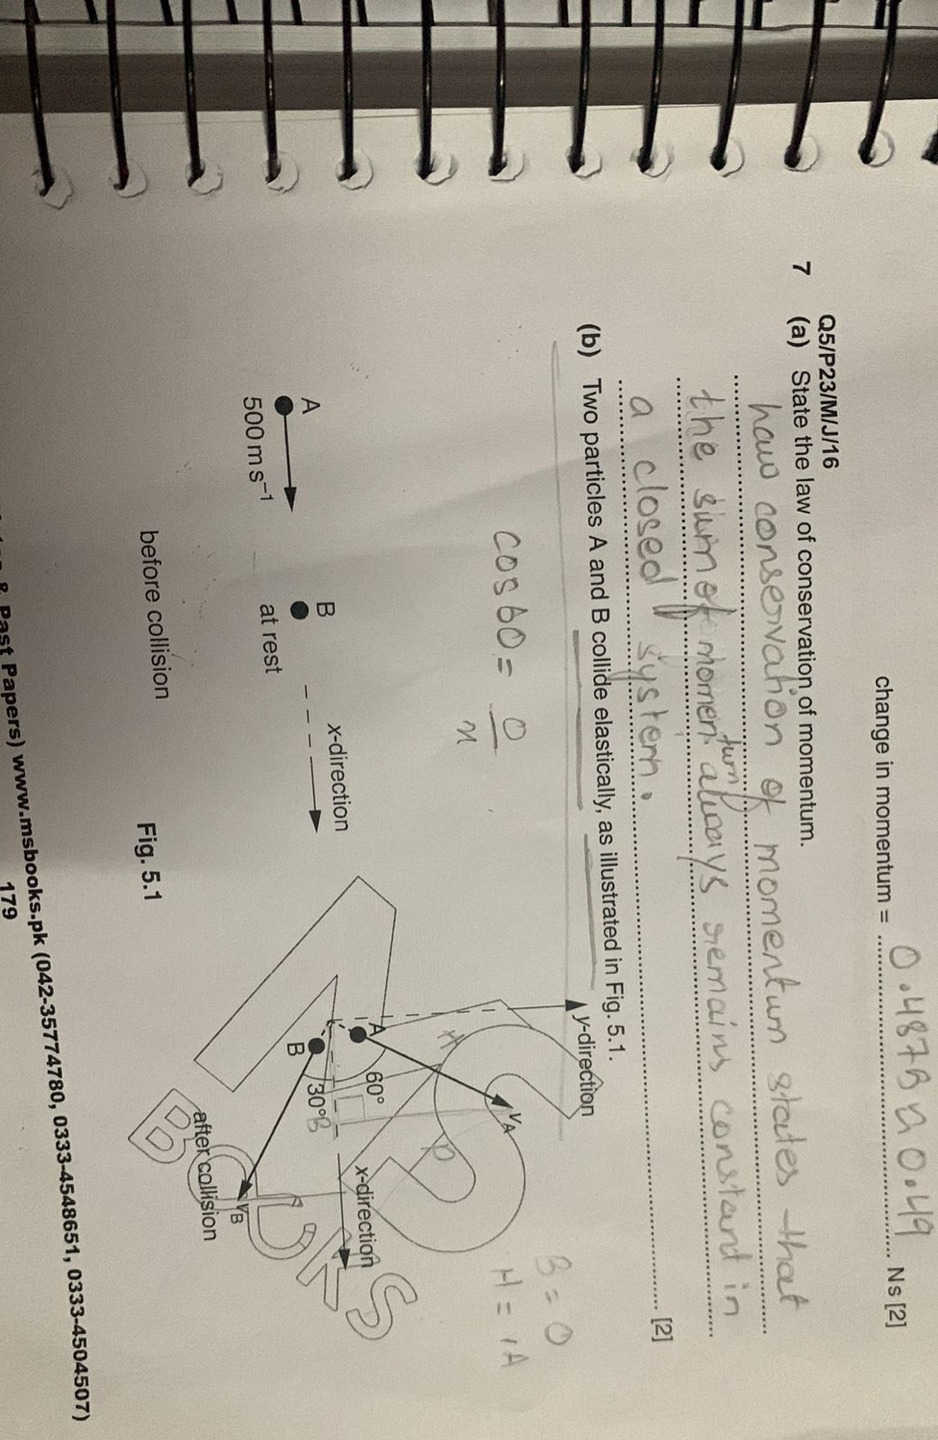 change in momentum = 0.4878 ≈ 0.49 Ns [2]
Q5/P23/M/J/16
7 (a) State the law of conservation of momentum.
haw conservation of momentum states that
the sum of momentum always remains constand in
a closed system.
[2]
(b) Two particles A and B collide elastically, as illustrated in Fig. 5.1.
cos60 = 0
B = 0
y-direction
vA
A
60°
x-direction
B
30°
vB
after collision
A
500 m s⁻¹
B
at rest
x-direction
before collision
Fig. 5.1
BOOKS
& Past Papers) www.msbooks.pk (042-35774780, 0333-4548651, 0333-4504507)
179